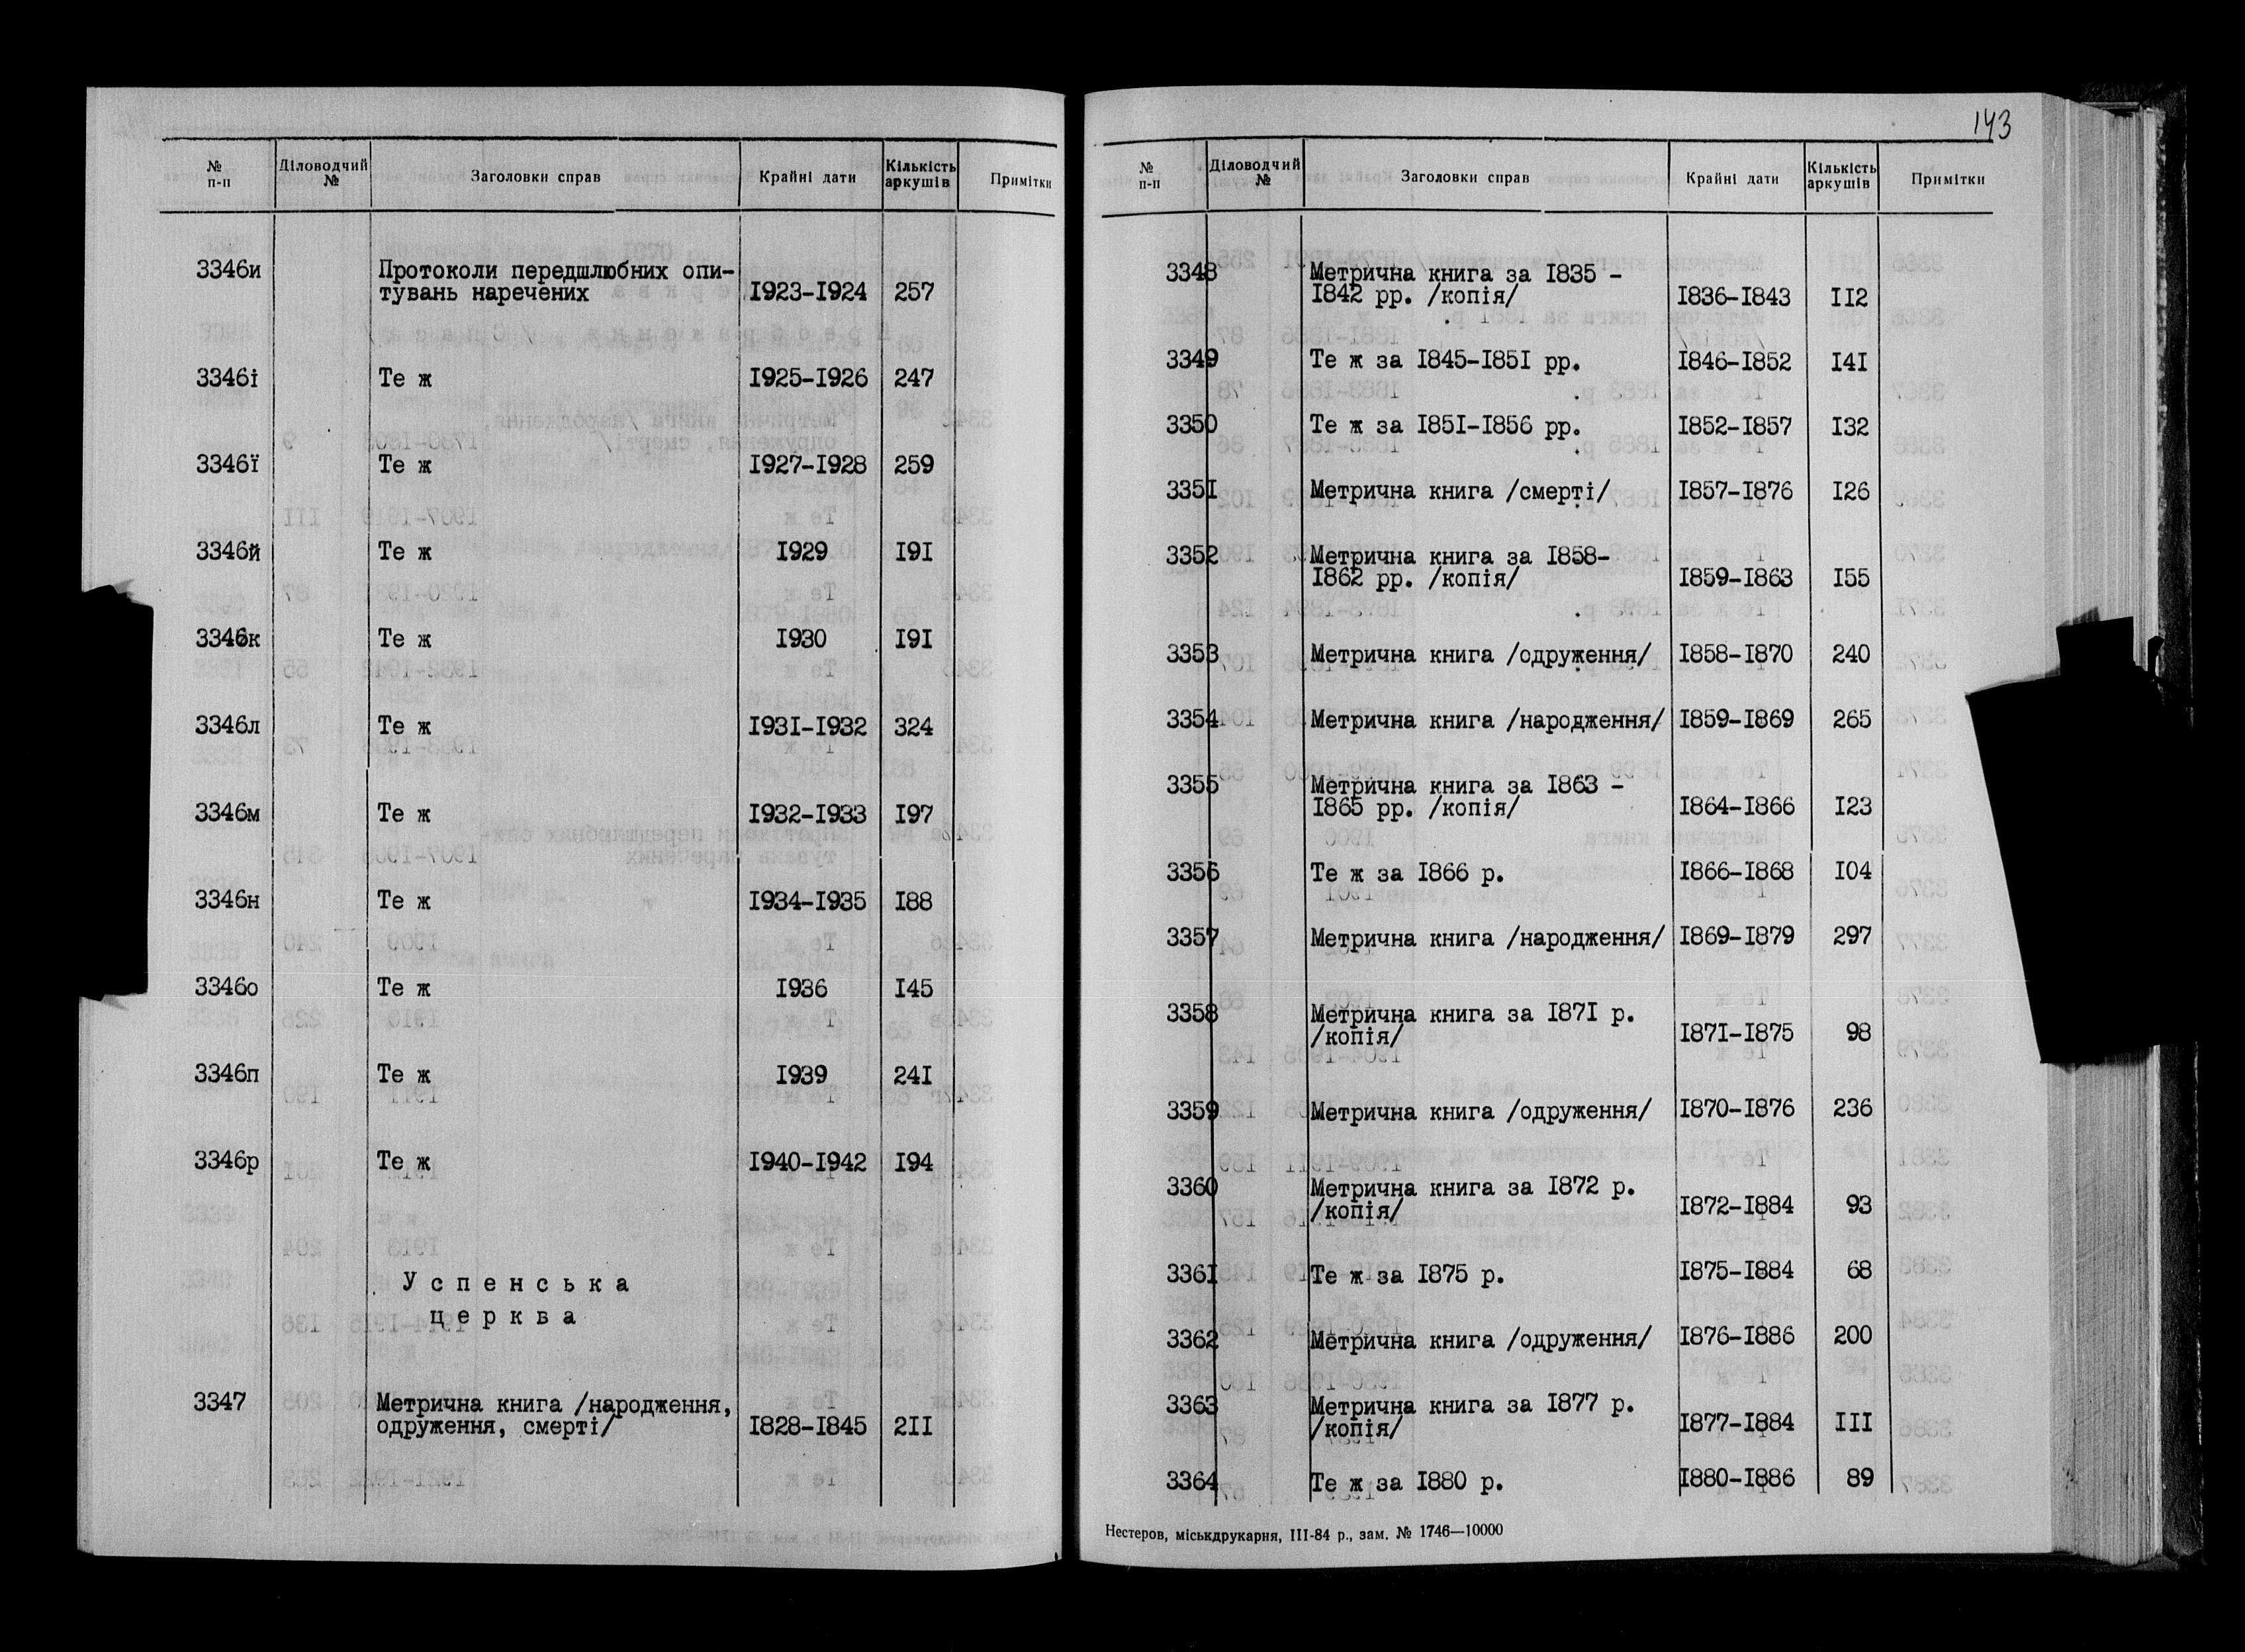 № п-п Діловодчий № Заголовки справ Крайні дати Кількість аркушів Примітки
3346и Протоколи передшлюбних опи-
тувань наречених 1923-1924 257
3346і Те ж 1925-1926 247
3346ї Те ж 1927-1928 259
3346й Те ж 1929 191
3346к Те ж 1930 191
3346л Те ж 1931-1932 324
3346м Те ж 1932-1933 197
3346н Те ж 1934-1935 188
3346о Те ж 1936 145
3346п Те ж 1939 241
3346р Те ж 1940-1942 194
Успенська
церква
3347 Метрична книга /народження,
одруження, смерті/ 1828-1845 211
143
№ п-п Діловодчий № Заголовки справ Крайні дати Кількість аркушів Примітки
3348 Метрична книга за 1835 -
1842 рр. /копія/ 1836-1843 112
3349 Те ж за 1845-1851 рр. 1846-1852 141
3350 Те ж за 1851-1856 рр. 1852-1857 132
3351 Метрична книга /смерті/ 1857-1876 126
3352 Метрична книга за 1858-
1862 рр. /копія/ 1859-1863 155
3353 Метрична книга /одруження/ 1858-1870 240
3354 Метрична книга /народження/ 1859-1869 265
3355 Метрична книга за 1863 -
1865 рр. /копія/ 1864-1866 123
3356 Те ж за 1866 р. 1866-1868 104
3357 Метрична книга /народження/ 1869-1879 297
3358 Метрична книга за 1871 р.
/копія/ 1871-1875 98
3359 Метрична книга /одруження/ 1870-1876 236
3360 Метрична книга за 1872 р.
/копія/ 1872-1884 93
3361 Те ж за 1875 р. 1875-1884 68
3362 Метрична книга /одруження/ 1876-1886 200
3363 Метрична книга за 1877 р.
/копія/ 1877-1884 111
3364 Те ж за 1880 р. 1880-1886 89
Нестеров, міськдрукарня, III-84 р., зам. № 1746—10000